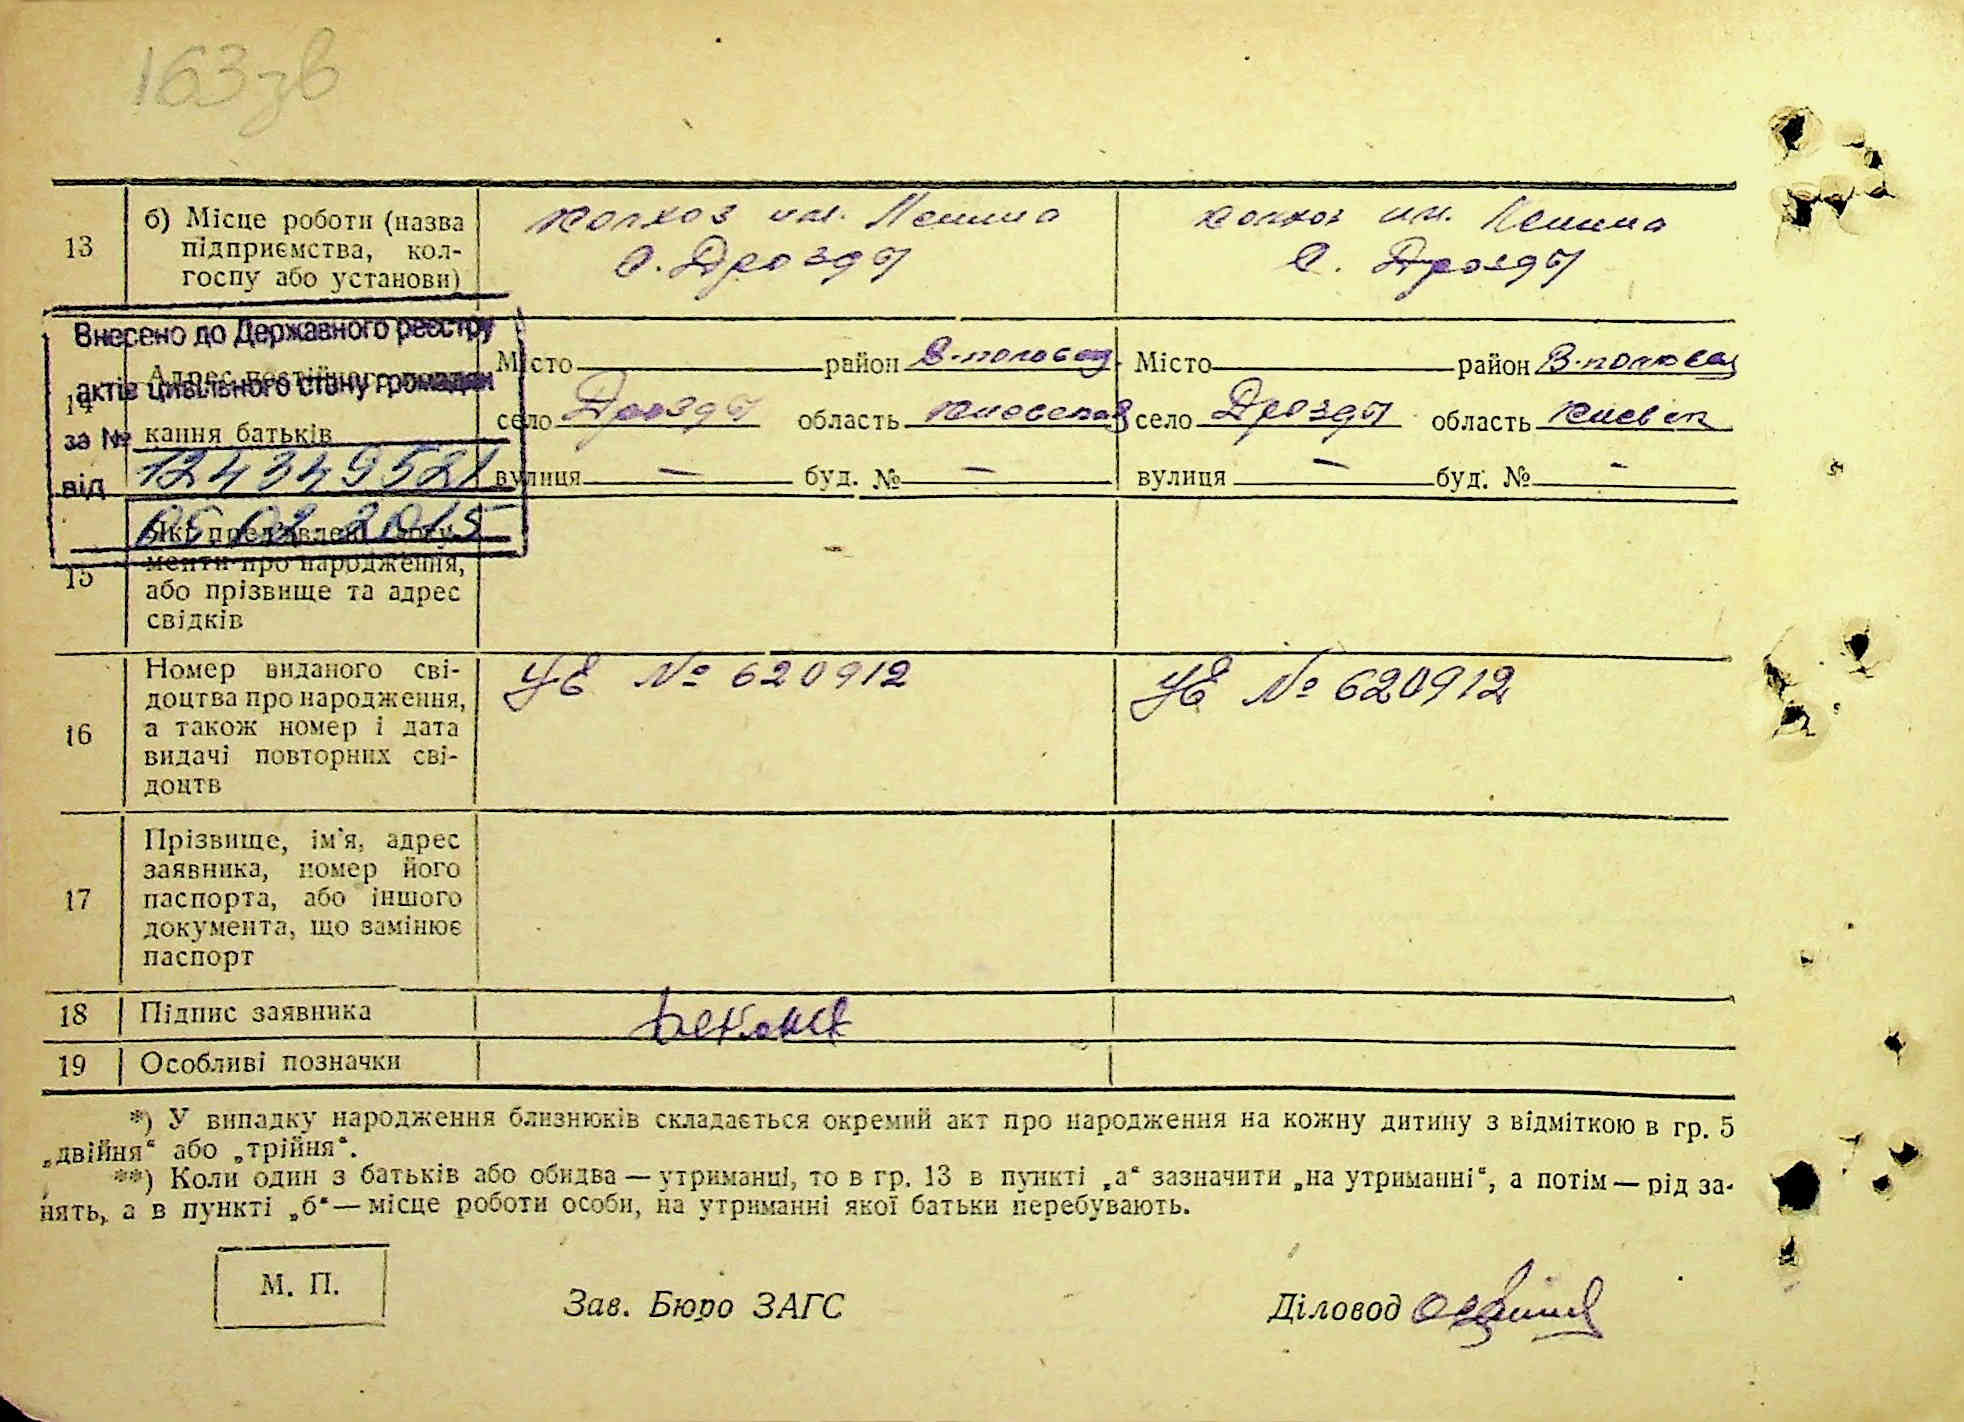 163зв
13
б) Місце роботи (назва
підприємства, кол-
госпу або установи)
колхоз им. Ленина
с. Дрозды
колхоз им. Ленина
с. Дрозды
Внесено до Державного реєстру
актів цивільного стану громадян
за № 124349521
від 05 02 2015
14
Адрес постійного
кання батьків
Місто район В-половец.
село Дрозды область Киевская
вулиця — буд. № —
Місто район В-половец
село Дрозды область Киевск
вулиця — буд. № -
15
Які пред'явлені доку-
менти про народження,
або прізвище та адрес
свідків
16
Номер виданого сві-
доцтва про народження,
а також номер і дата
видачі повторних сві-
доцтв
УЕ № 620912
УЕ № 620912
17
Прізвище, ім'я, адрес
заявника, номер його
паспорта, або іншого
документа, що замінює
паспорт
18 Підпис заявника
19 Особливі позначки
*) У випадку народження близнюків складається окремий акт про народження на кожну дитину з відміткою в гр. 5
„двійня“ або „трійня“.
**) Коли один з батьків або обидва — утриманці, то в гр. 13 в пункті „а“ зазначити „на утриманні“, а потім — рід за-
нять, а в пункті „б“ — місце роботи особи, на утриманні якої батьки перебувають.
М. П.
Зав. Бюро ЗАГС
Діловод